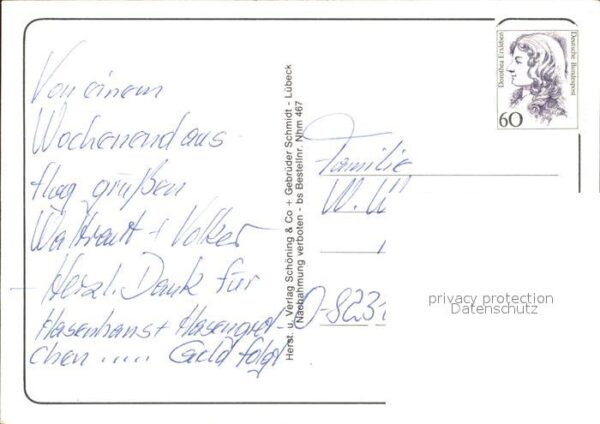 Von einem
Wochenendaus-
flug grüßen
Waltraut + Volker
Herzl. Dank für
Hasenhans + Hasengret-
chen ..... Geld folgt
Herst. u. Verlag Schöning & Co + Gebrüder Schmidt - Lübeck
Nachahmung verboten - bs Bestellnr. Nhm 467
Dorothea Erxleben
Deutsche Bundespost
60
Familie
W.
O-823
privacy protection
Datenschutz